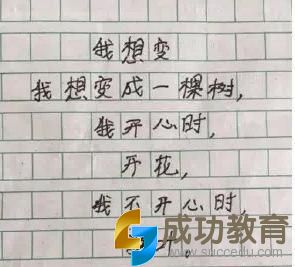 我想变
我想变成一棵树,
我开心时,
开花,
我不开心时,
成功教育
www.succedu.com